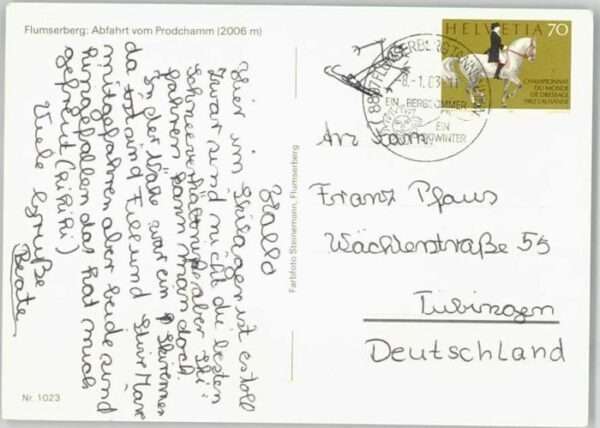 Flumserberg: Abfahrt vom Prodchamm (2006 m)
Hallo
Hier im Skilager ist es toll
zwar sind nicht die besten
Schneeverhältnisse aber Ski-
fahren kann man doch.
In der Nähe war ein Skirennen
da sind Fill und
mitgefahren aber beide sind
hingefallen das hat mich
gefreut (hihihi)
Viele Grüße
Beate
Nr. 1023
Farbfoto Steinemann, Flumserberg
HELVETIA 70
CHAMPIONNAT
DU MONDE
DE DRESSAGE
1982 LAUSANNE
FLUMSERBERG TANNENHEIM
EIN BERGSOMMER
EIN
WINTER
An Fam.
Franz Pfaus
Wächterstraße 55
Tübingen
Deutschland